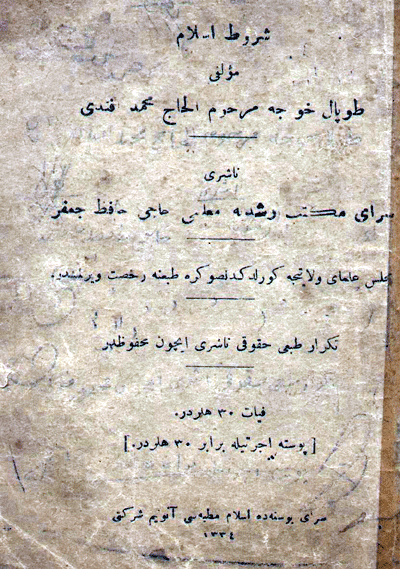 شروط اسلام
مؤلفی
طوپال خوجه مرحوم الحاج محمد افندی
ناشری
سرای مكتب رشديه معلمی حاجی حافظ جعفر
مجلس علمای ولايتجه كورلدكدنصوكره طبعنه رخصت ويرلمشدر.
تكرار طبعی حقوقی ناشری ايچون محفوظدر
فيات ٣٠ هلردر.
[ پوسته اجرتيله برابر ٣٠ هلردر. ]
سرای بوسنه‌ده اسلام مطبعه‌سی آنونيم شركتی
١٣٣٤